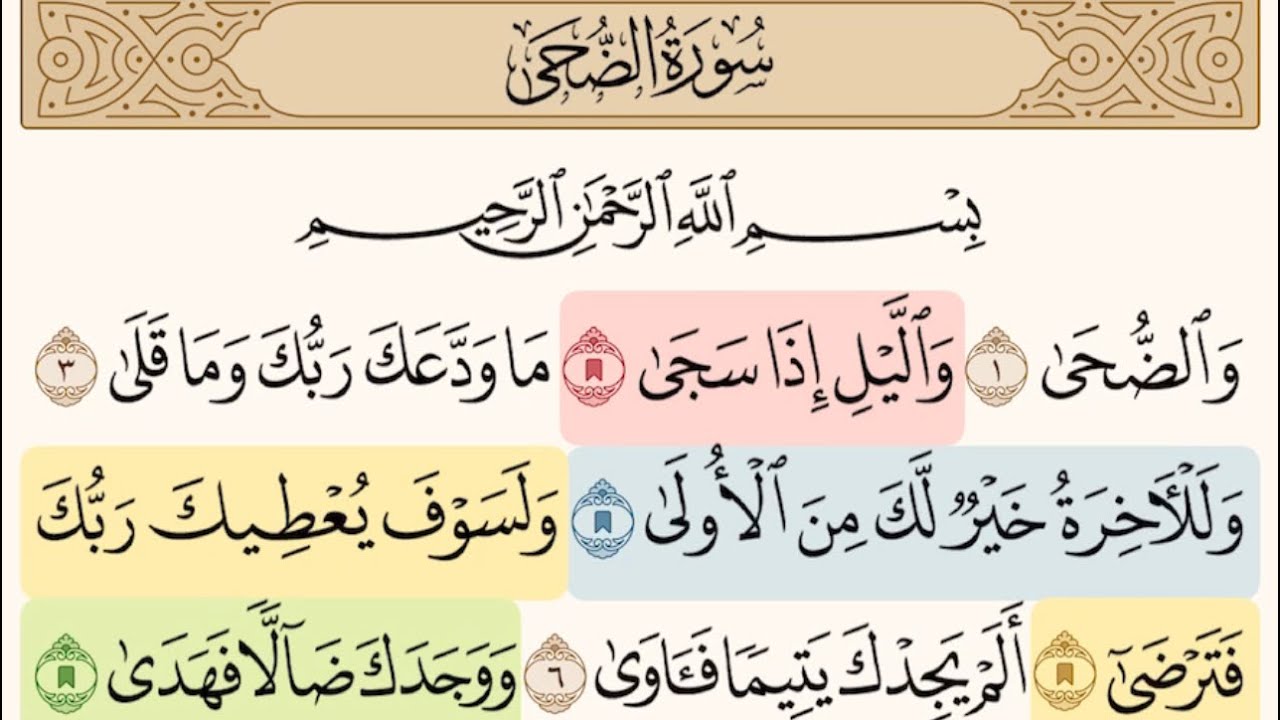 سُورَةُ الضُّحَىٰ
بِسْمِ ٱللَّهِ ٱلرَّحْمَٰنِ ٱلرَّحِيمِ
وَٱلضُّحَىٰ ١ وَٱلَّيْلِ إِذَا سَجَىٰ مَا وَدَّعَكَ رَبُّكَ وَمَا قَلَىٰ ٣
وَلَلْءَاخِرَةُ خَيْرٌ لَّكَ مِنَ ٱلْأُولَىٰ وَلَسَوْفَ يُعْطِيكَ رَبُّكَ
فَتَرْضَىٰٓ أَلَمْ يَجِدْكَ يَتِيمًا فَـَٔاوَىٰ ٦ وَوَجَدَكَ ضَآلًّا فَهَدَىٰ